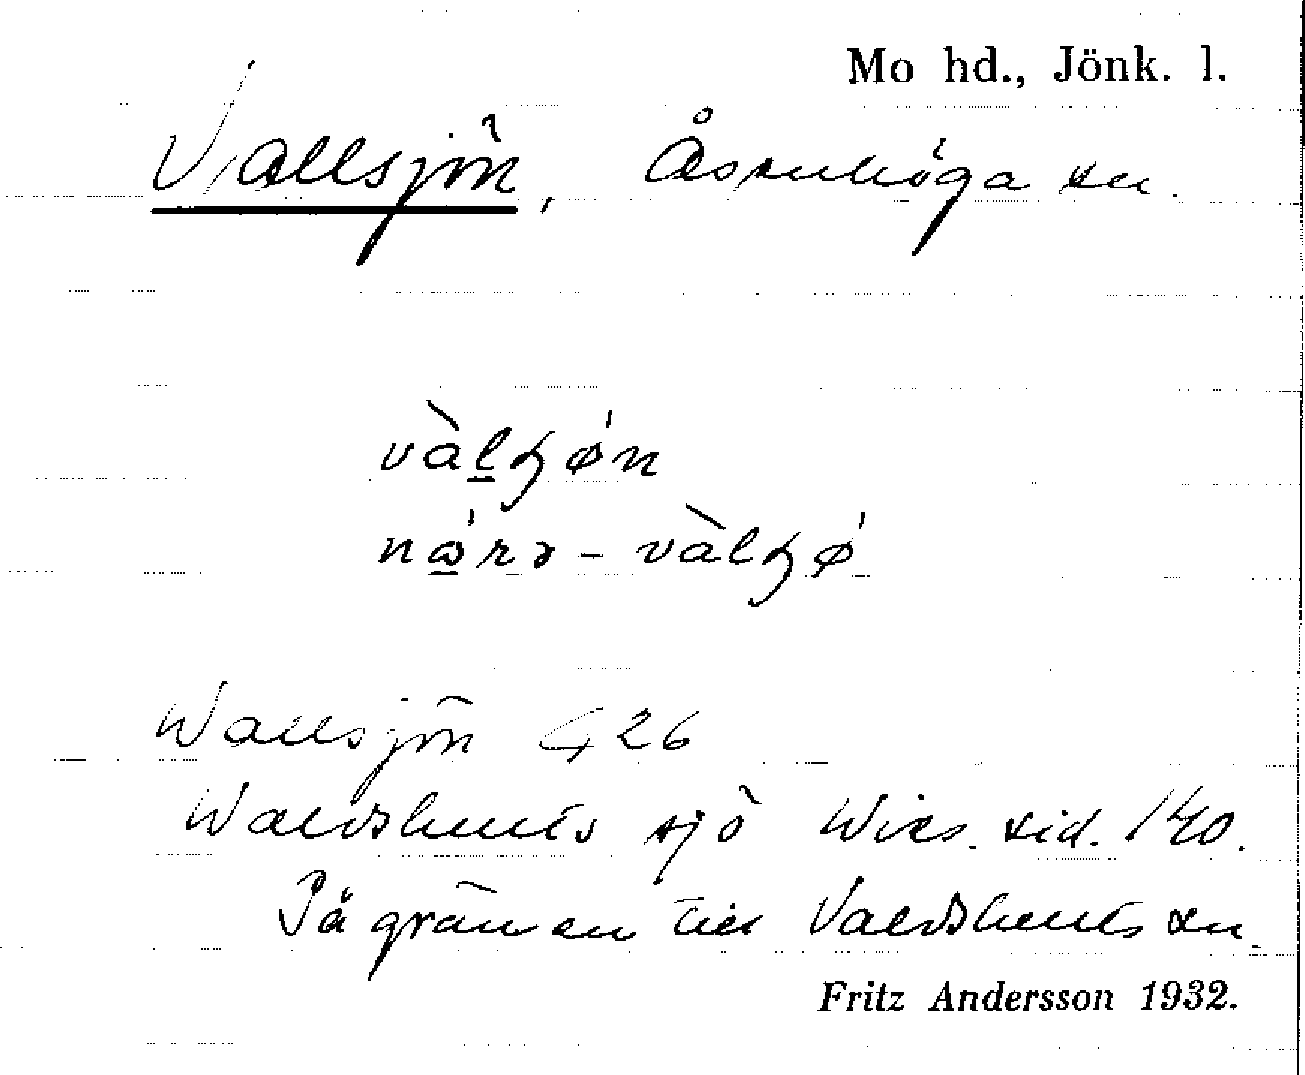 Mo hd., Jönk. l.
Vallsjön, Åsenhöga sn.
vàlʖø'n
nɷ'rə - vàlʖø'
Wallsjön G 26
Waldshults sjö Wies. sid. 140.
På gränsen till Valdshults sn.
Fritz Andersson 1932.